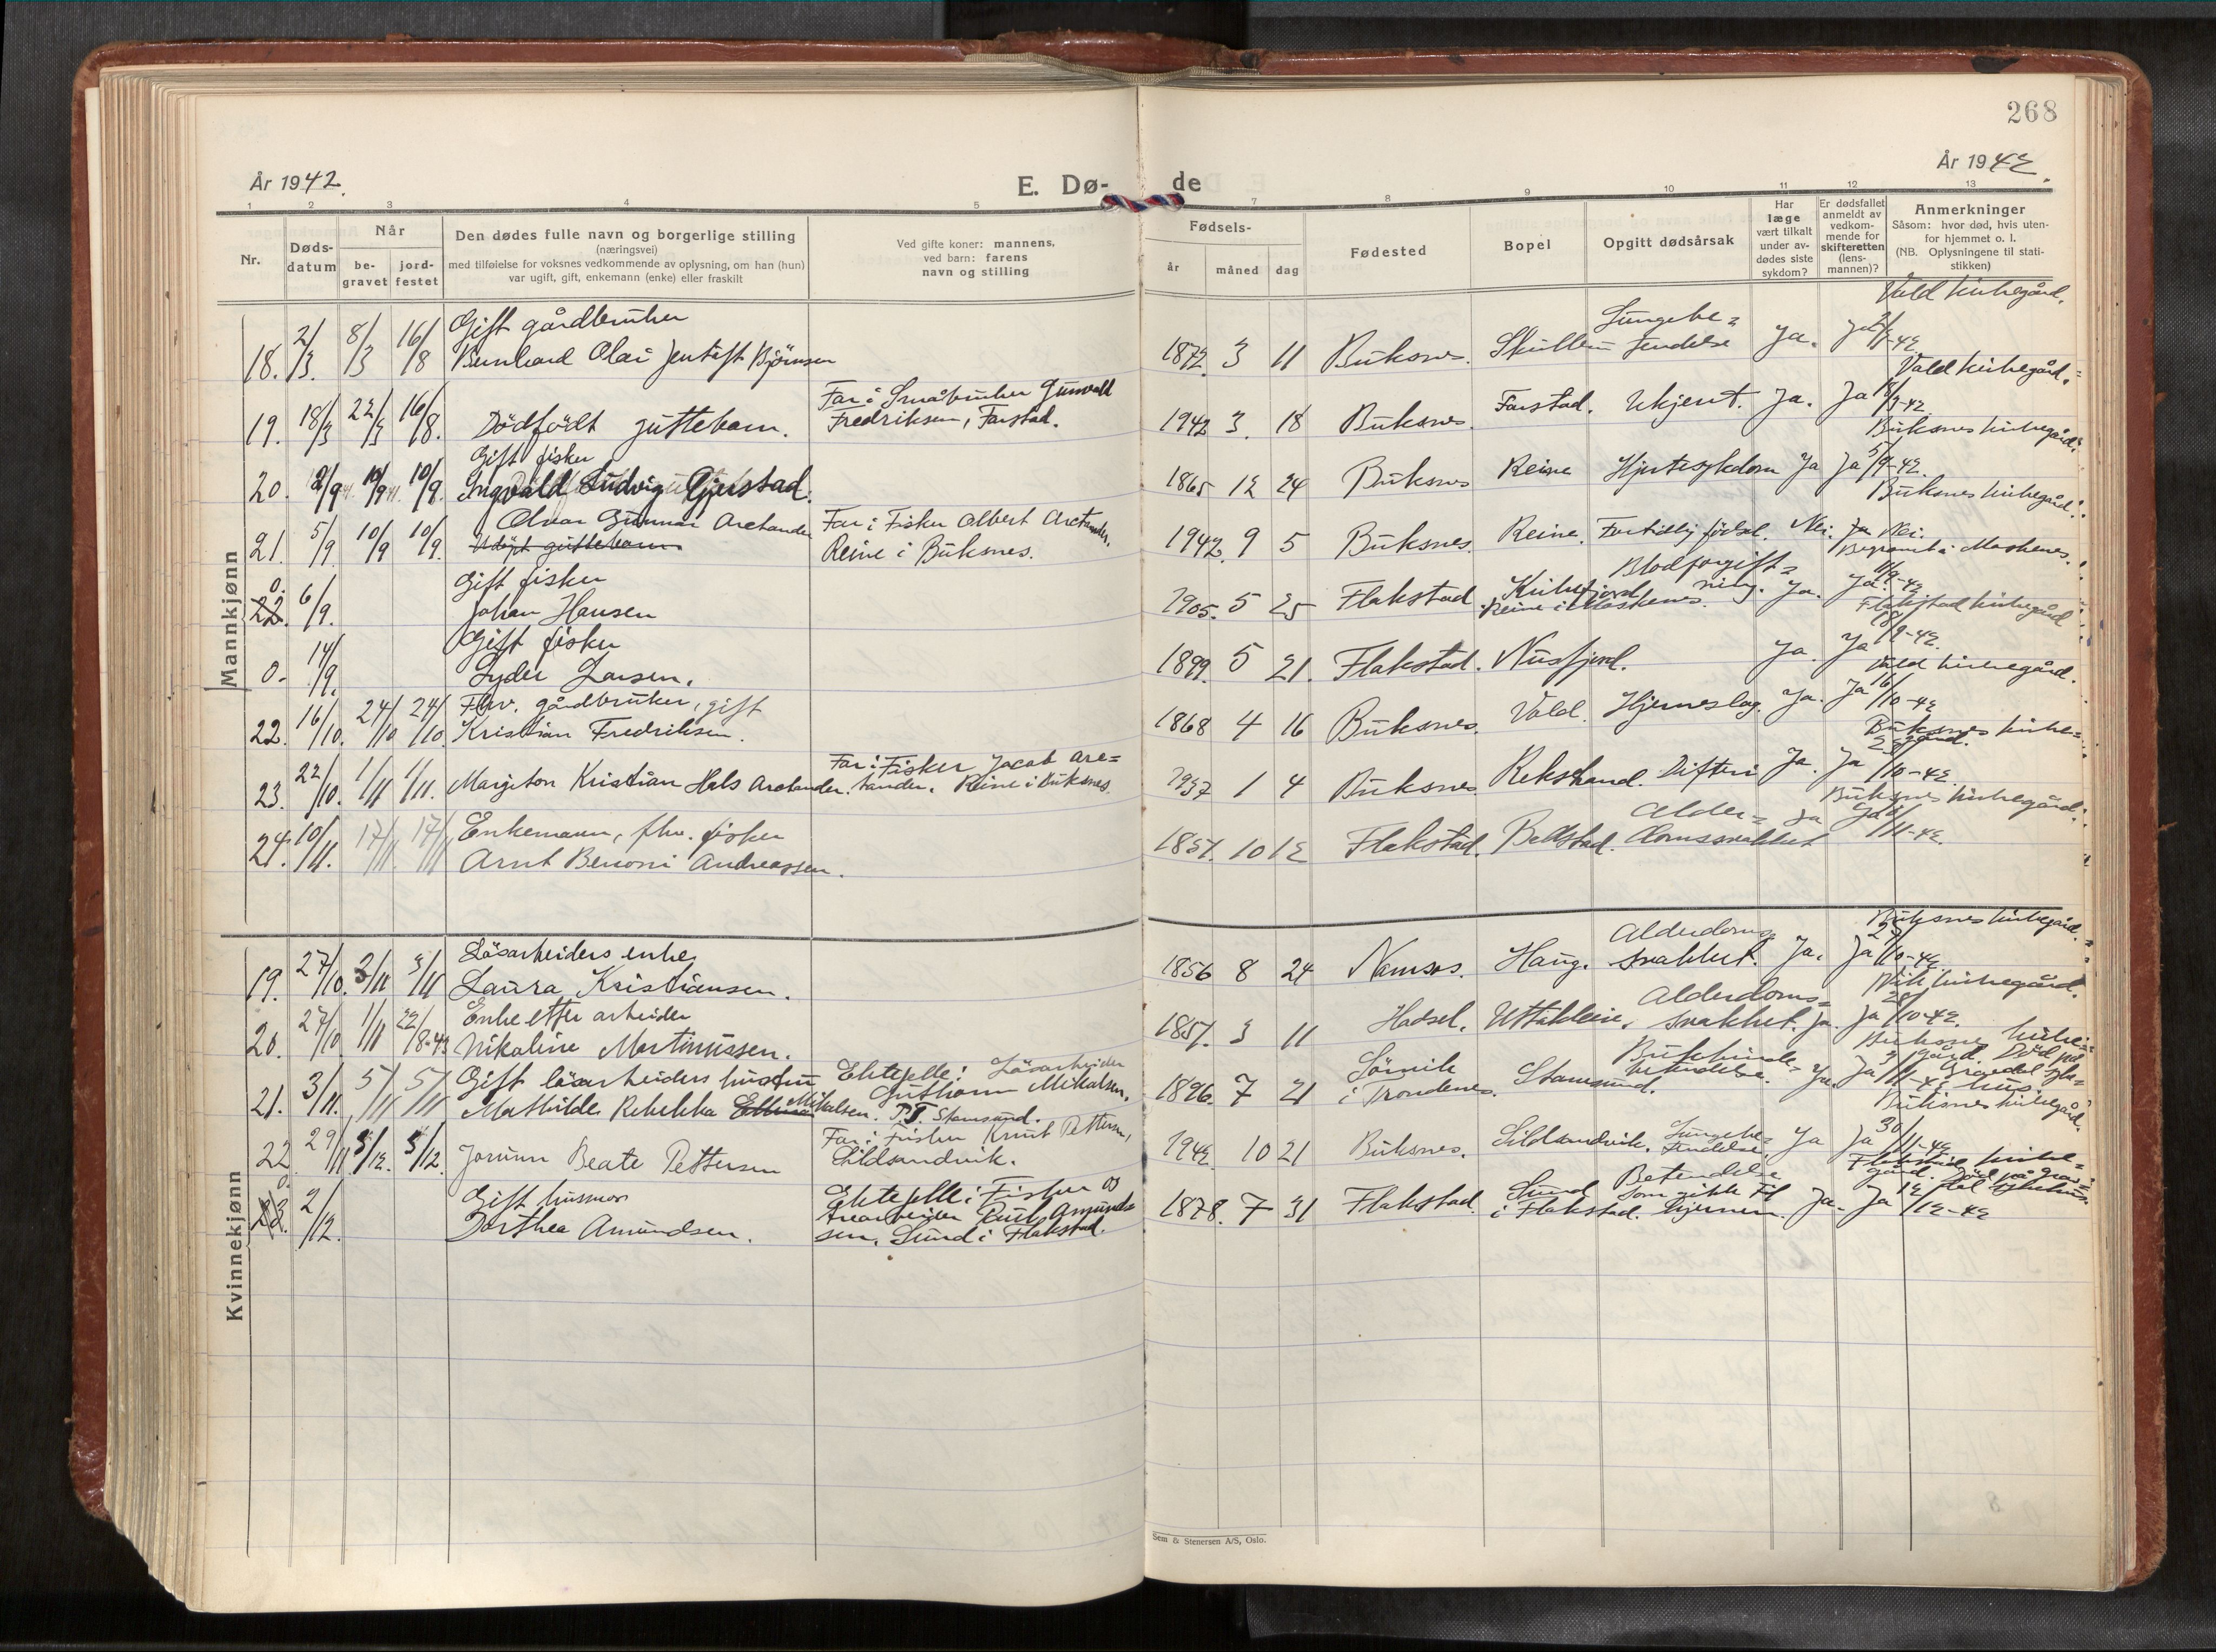 268
År 1942.
År 1942.
E. Dø-
de
1 2 3 4 5 7 8 9 10 11 12 13
Nr.
Døds-
datum
Når
be-
gravet
jord-
festet
Den dødes fulle navn og borgerlige stilling
(næringsvei)
med tilføielse for voksnes vedkommende av oplysning, om han (hun)
var ugift, gift, enkemann (enke) eller fraskilt
Ved gifte koner: mannens,
ved barn: farens
navn og stilling
Fødsels-
år måned dag
Fødested
Bopel
Opgitt dødsårsak
Har
læge
vært tilkalt
under av-
dødes siste
sykdom?
Er dødsfallet
anmeldt av
vedkom-
mende for
skifteretten
(lens-
mannen)?
Anmerkninger
Såsom: hvor død, hvis uten-
for hjemmet o. l.
(NB. Oplysningene til stati-
stikken)
Mannkjønn
18. 2/3. 8/3 16/8 Gift gårdbruker
Bernhard Olai Jentoft Bjørnsen
1872. 3 11 Buksnes. Skullem Lungebe=
tendelse Ja. Ja 2/3-42
Vald kirkegård.
19. 18/3 22/3 16/8. Dödfödt guttebarn.
Far: Småbruker Gunvald
Fredriksen, Farstad.
1942 3. 18 Buksnes. Farstad. Ukjent. Ja. Ja 18/3-42.
Vald kirkegård.
20. 2/9 10/9 10/9. Gift fisker
Ingvald Ludvig Gjerstad.
1865 12 24 Buksnes Reine Hjertesykdom Ja Ja 5/9-42.
Buksnes kirkegård.
21. 5/9 10/9 10/9. Olvar Gunnar Arctander
Udøpt guttebarn
Far: Fisker Albert Arctander.
Reine i Buksnes.
1942. 9 5 Buksnes. Reine. Fortidlig födsel. Nei. Ja Nei.
Buksnes kirkegård.
0. 22. 6/9. Gift fisker
Johan Hansen
1905. 5 25 Flakstad Kirkefjord
Reine i Moskenes. Blodforgift=
ning. Ja. Ja. 11/9-42
Begravet i Moskenes.
0. 14/9. Gift fisker
Lyder Larsen.
1899. 5 21. Flakstad. Nusfjord. Ja. Ja 18/9-42.
Flakstad kirkegård
22. 16/10. 24/10 24/10. Fhv. gårdbruker, gift
Kristian Fredriksen.
1868 4 16 Buksnes. Vold. Hjerneslag. Ja. Ja 16/10-42
Vald kirkegård.
23. 22/10. 1/11 1/11. Margiton Kristian Hals Arctander.
Far: Fisker Jacob Arc=
tander. Reine i Buksnes.
1937 1 4 Buksnes Rekstrand. Difteri Ja. Ja 28/10-42.
Buksnes kirke=
gård.
24. 10/11. 17/11 17/11 Enkemann, fhv. fisker
Arnt Benoni Andreassen.
1851. 10 12 Flakstad. Bollstad. Alder=
domssvakhet Ja Ja /11-42.
Buksnes kirkegård.
Kvinnekjønn
19. 27/10. 3/11 3/11 Läsarbeiders enke
Laura Kristiansen.
1856 8 24 Namsos. Haug. Alderdoms=
svakhet. Ja. Ja 27/10-42.
Buksnes kirkegård.
20. 27/10 1/11 22/8-43 Enke etter arbeider
Nikoline Martinussen.
1851. 3 11 Hadsel. Uttakleiv. Alderdoms=
svakhet. Ja. Ja 28/10-42.
Vik kirkegård.
21. 3/11. 5/11 5/11 Gift läsarbeiders hustru
Mathilde Rebekka Mikalsen.
Ektefelle: Läsarbeider
Guthorm Mikalsen.
P.T. Stamsund.
1896. 7 21 Sörvik
i Trondenes. Stamsund. Bukhinde=
betendelse. Ja. Ja 3/11-42
Buksnes kirke=
gård. Död på
Gravdal syke=
hus.
22. 29/11 5/12. 5/12. Jorunn Beate Pettersen
Far: Fisker Knut Pettersen,
Sildsandvik.
1942. 10 21 Buksnes. Sildsandvik. Lungebe=
tendelse. Ja Ja 30/11-42
Buksnes kirkegård.
0. 23. 2/12. Gift husmor
Dorthea Amundsen.
Ektefelle: Fisker og
trearbeider Amund=
sen. Sund i Flakstad.
1878. 7 31 Flakstad. Sund
i Flakstad. Betendelse
som gikk til
hjernen. Ja. Ja 12/12-42
Flakstad kirke=
gård. Död på Grav=
dal sykehus
Sem & Stenersen A/S, Oslo.